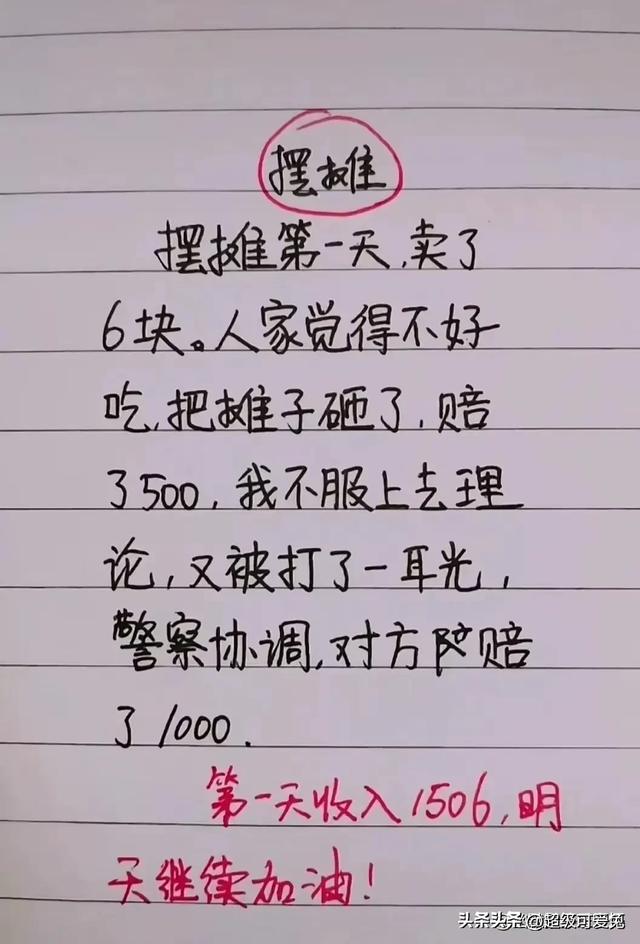 摆摊
摆摊第一天,卖了
6块。人家觉得不好
吃,把摊子砸了,赔
了500,我不服上去理
论,又被打了一耳光,
警察协调,对方陪赔
了1000.
第一天收入1506,明
天继续加油!
头条头条 @超级可爱兔